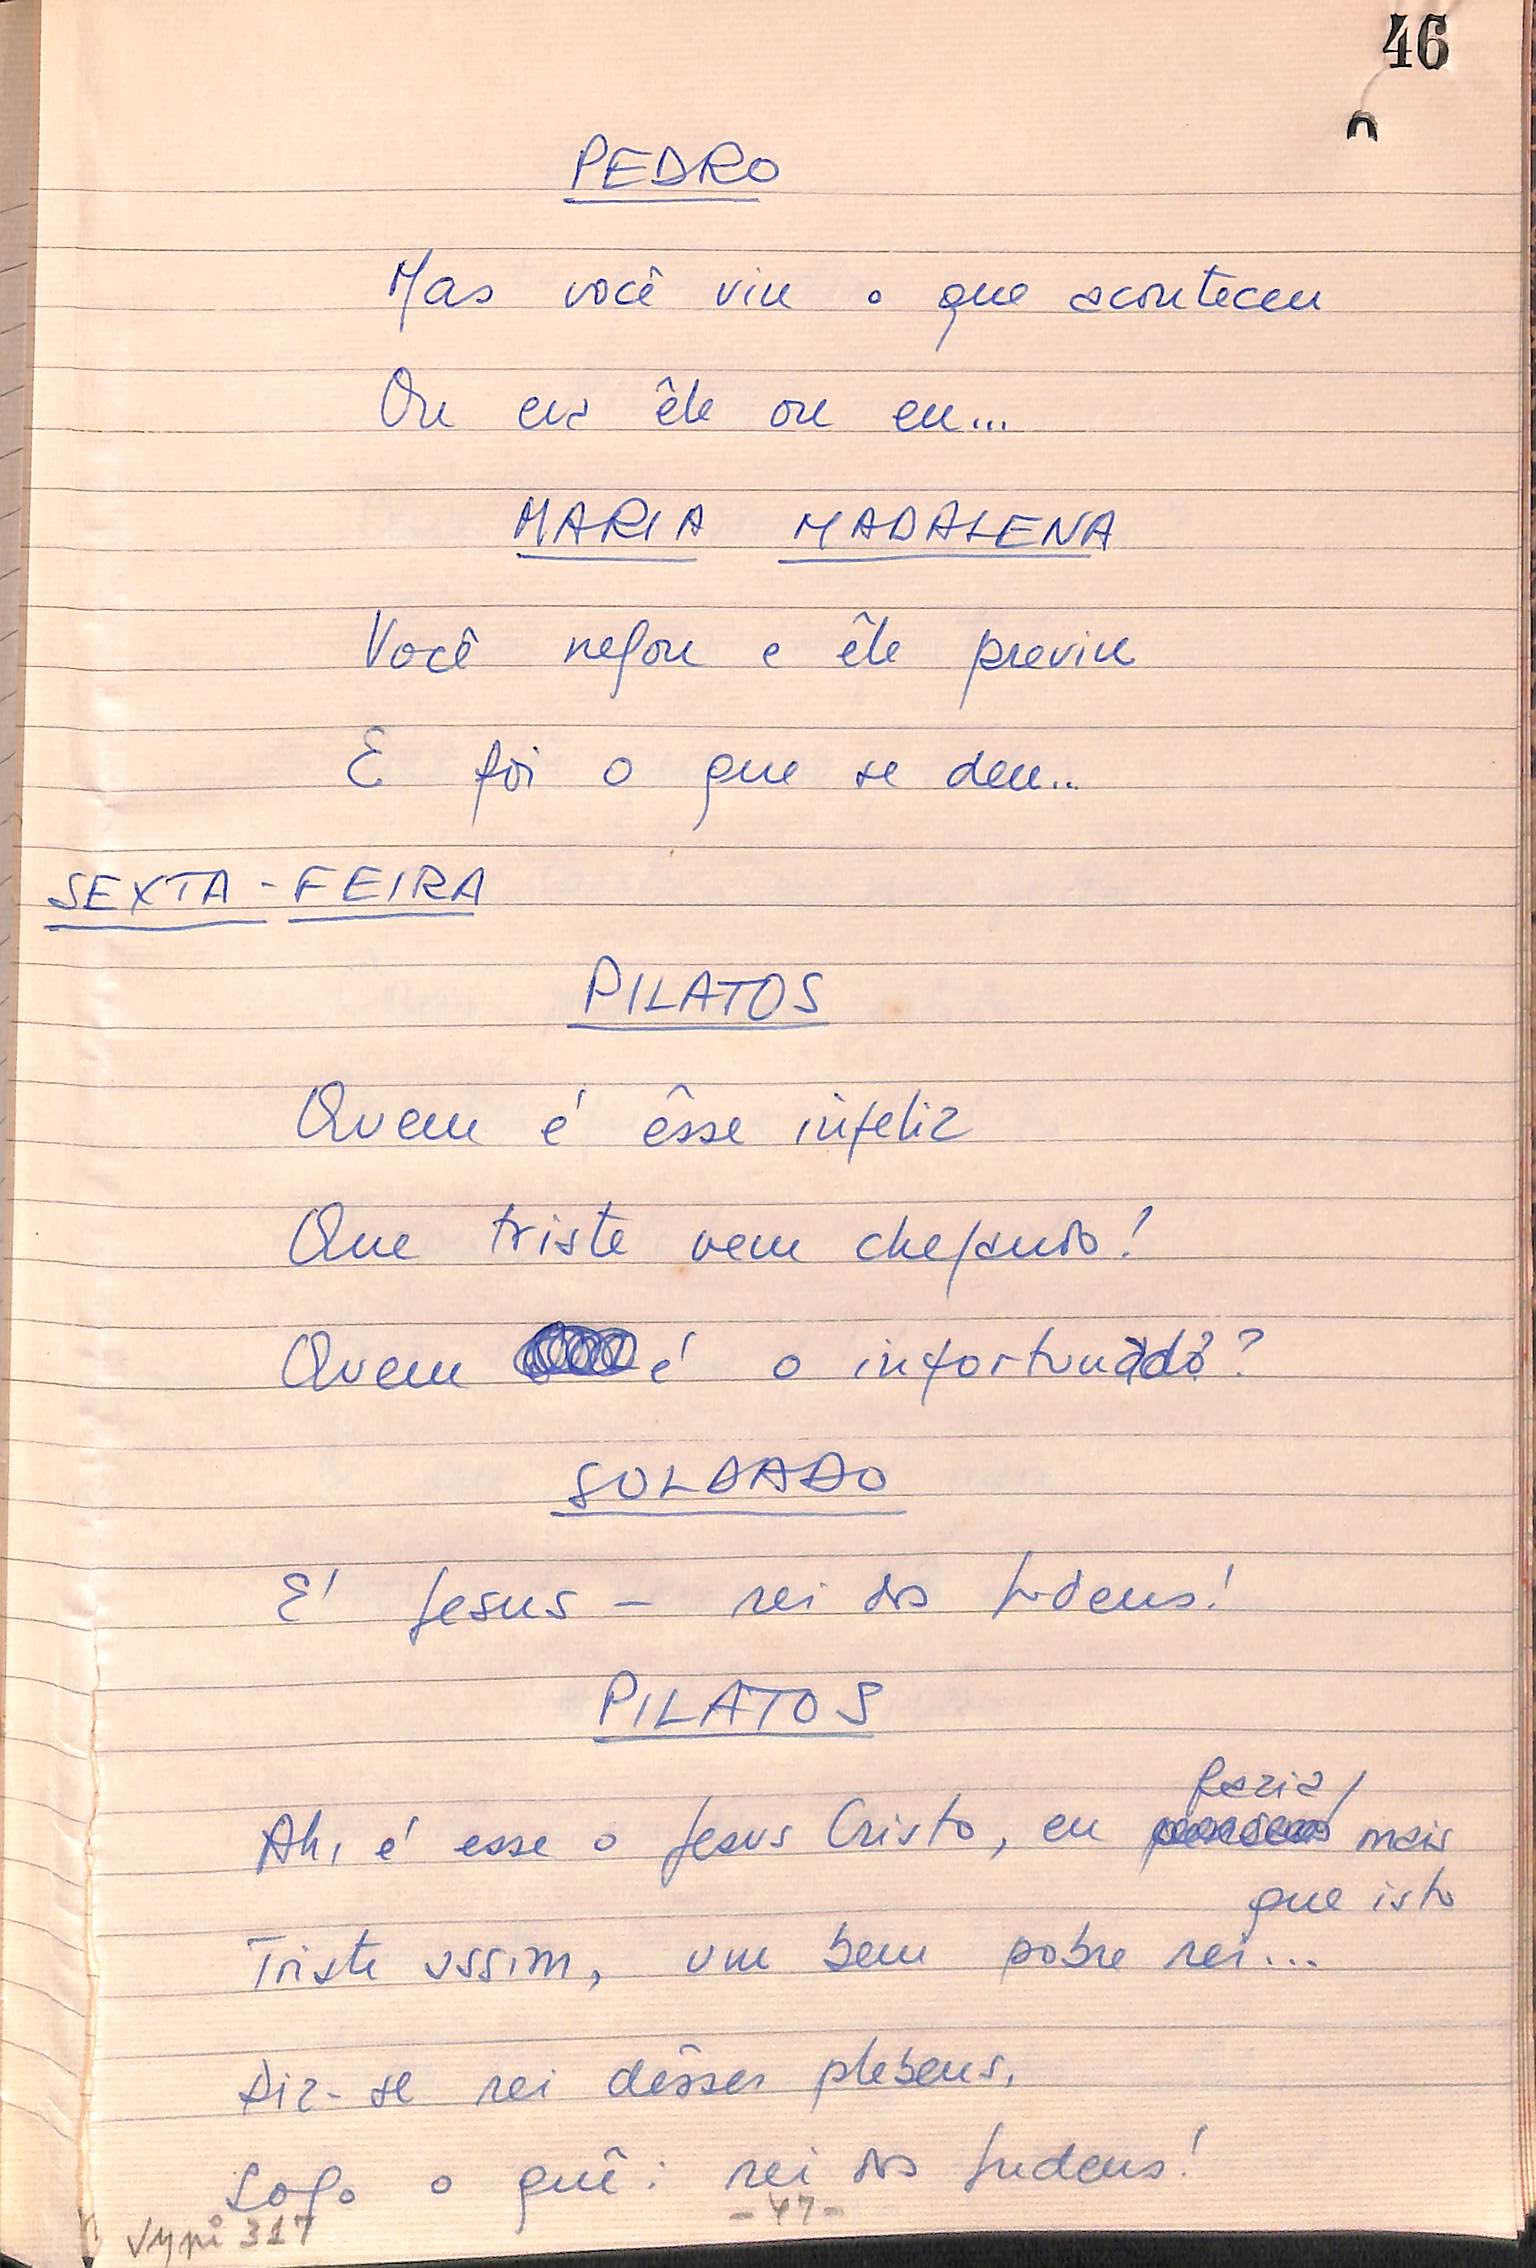 46
PEDRO
Mas você viu o que aconteceu
Ou era êle ou eu...
MARIA MADALENA
Você negou e êle previu
E foi o que se deu...
SEXTA-FEIRA
PILATOS
Quem é êsse infeliz
Que triste vem chegando!
Quem é o infortunado?
SOLDADO
E' Jesus - rei dos Judeus!
PILATOS
fazia
Ah, é esse o Jesus Cristo, eu mais
que isto
Triste assim, um bem pobre rei...
Diz-se rei dêsses plebeus,
Logo o quê: rei dos Judeus!
- 47 -
317